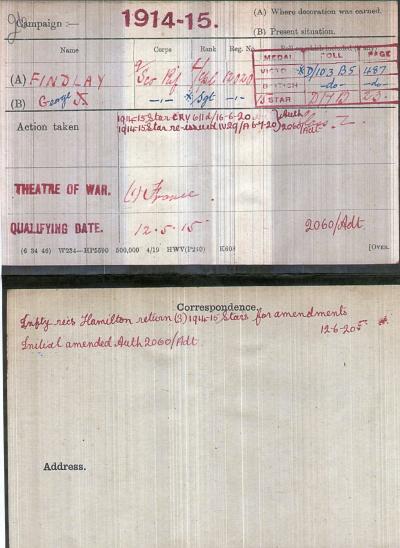 Campaign :— 1914-15. (A) Where decoration was earned.
(B) Present situation.
Name Corps Rank Reg. No.
MEDAL ROLL PAGE
(A) FINDLAY 9/ Sco Rif
VICTORY D/103 B5 487
BRITISH -do- -do-
(B) George -„- Sgt -„-
STAR
Action taken 1914-15 Star CRV 611d/16-6-20
1914-15 Star re-issued IV 29/A 6-7-20 Auth 2060/Adt.
THEATRE OF WAR. (1) France.
QUALIFYING DATE. 12.5.15 2060/Adt
(6 34 46) W234—HP5590 500,000 4/19 HWV(P240) K608 [OVER.
Correspondence.
Infty recs Hamilton return (3) 1914-15 Stars for amendments
12-6-20
Initial amended Auth 2060/Adt
Address.